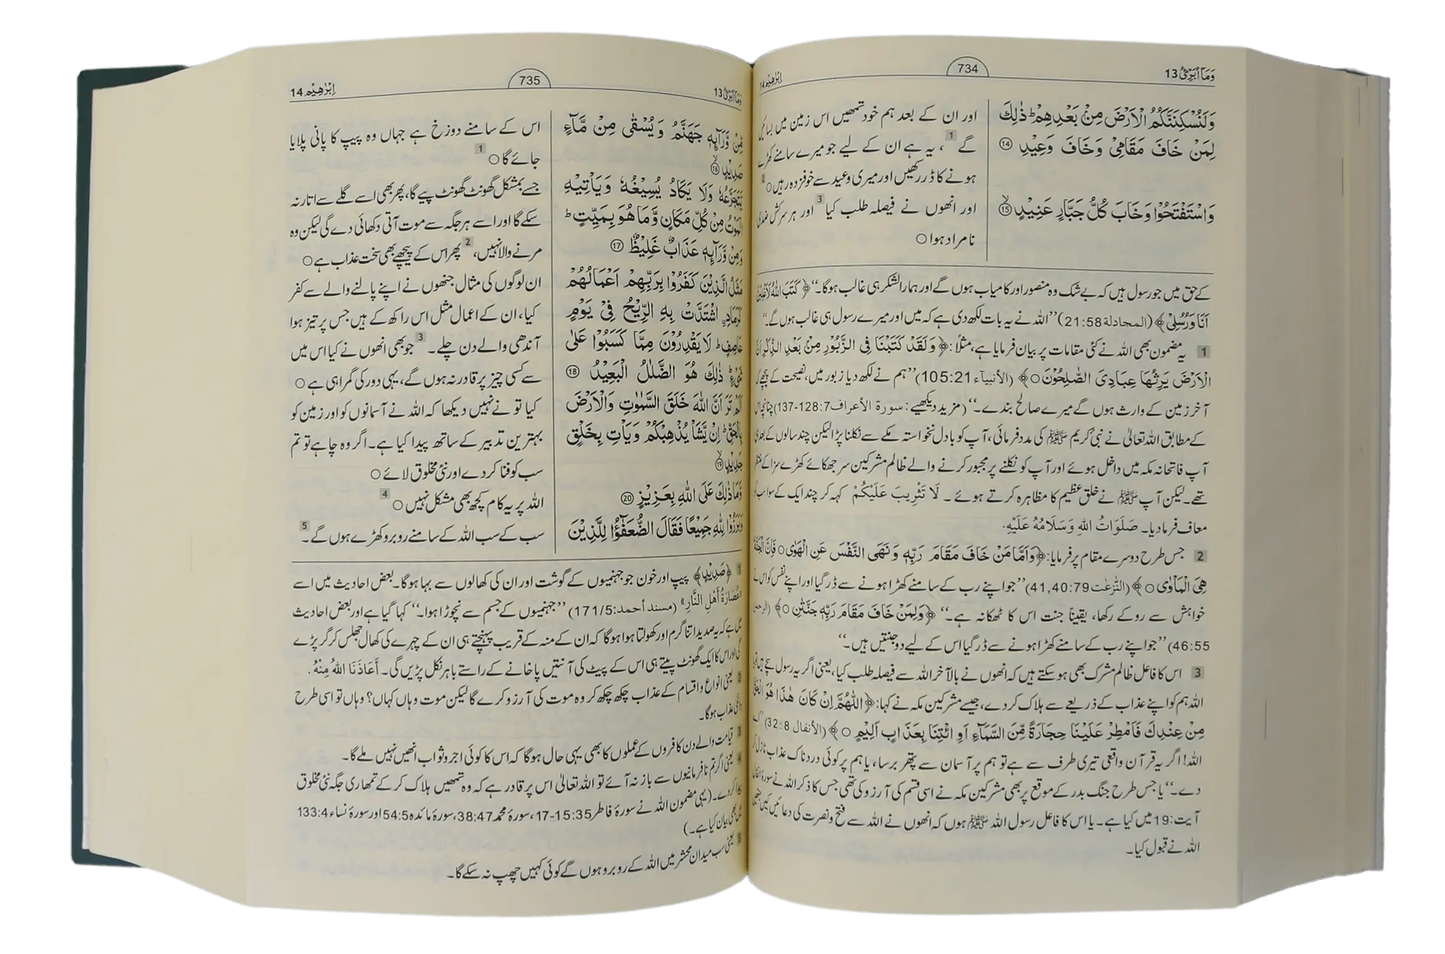 وَمَآ اُبَرِّئُ 13
734
اِبْرٰهِيْم 14
وَلَنُسْكِنَنَّكُمُ الْاَرْضَ مِنْۢ بَعْدِهِمْ ؕ ذٰلِكَ
لِمَنْ خَافَ مَقَامِيْ وَخَافَ وَعِيْدِ ⑭
وَاسْتَفْتَحُوْا وَخَابَ كُلُّ جَبَّارٍ عَنِيْدٍ ⑮
اور ان کے بعد ہم خود تمھیں اس زمین میں بسائیں
گے 1 ، یہ ہے ان کے لیے جو میرے سامنے کھڑے
ہونے کا ڈر رکھیں اور میری وعید سے خوفزدہ رہیں 2 ○
اور انھوں نے فیصلہ طلب کیا 3 اور ہر سرکش ضدی
نامراد ہوا ○
کے حق میں جو رسول ہیں کہ بے شک وہ منصور اور کامیاب ہوں گے اور ہمارا لشکر ہی غالب ہوگا۔‘‘ ﴿ كَتَبَ اللّٰهُ لَاَغْلِبَنَّ
اَنَا وَرُسُلِيْ ﴾ (المجادلة 21:58) ’’اللہ نے یہ بات لکھ دی ہے کہ میں اور میرے رسول ہی غالب ہوں گے۔‘‘
1 یہ مضمون بھی اللہ نے کئی مقامات پر بیان فرمایا ہے، مثلاً: ﴿ وَلَقَدْ كَتَبْنَا فِي الزَّبُوْرِ مِنْۢ بَعْدِ الذِّكْرِ اَنَّ
الْاَرْضَ يَرِثُهَا عِبَادِيَ الصّٰلِحُوْنَ ○ ﴾ (الأنبياء 105:21) ’’ہم نے لکھ دیا زبور میں، نصیحت کے پیچھے کہ
آخر زمین کے وارث ہوں گے میرے صالح بندے۔‘‘ (مزید دیکھیے: سورة الأعراف 7:128-137) چنانچہ اس
کے مطابق اللہ تعالیٰ نے نبی کریم ﷺ کی مدد فرمائی، آپ کو بادل نخواستہ مکے سے نکلنا پڑا لیکن چند سالوں کے بعد ہی
آپ فاتحانہ مکہ میں داخل ہوئے اور آپ کو نکلنے پر مجبور کرنے والے ظالم مشرکین سر جھکائے کھڑے سزا کے منتظر
تھے۔ لیکن آپ ﷺ نے خلق عظیم کا مظاہرہ کرتے ہوئے۔ لَا تَثْرِيبَ عَلَيْكُمْ کہہ کر چند ایک کے سوا سب کو
معاف فرما دیا۔ صَلَوَاتُ اللهِ وَسَلَامُهُ عَلَيْهِ.
2 جس طرح دوسرے مقام پر فرمایا: ﴿ وَاَمَّا مَنْ خَافَ مَقَامَ رَبِّهٖ وَنَهَى النَّفْسَ عَنِ الْهَوٰى ○ فَاِنَّ الْجَنَّةَ
هِيَ الْمَاْوٰى ○ ﴾ (النّٰزعٰت 41,40:79) ’’جو اپنے رب کے سامنے کھڑا ہونے سے ڈر گیا اور اپنے نفس کو اس نے
خواہش سے روکے رکھا، یقیناً جنت اس کا ٹھکانہ ہے۔‘‘ ﴿ وَلِمَنْ خَافَ مَقَامَ رَبِّهٖ جَنَّتٰنِ ○ ﴾ (الرحمن
46:55) ’’جو اپنے رب کے سامنے کھڑا ہونے سے ڈر گیا اس کے لیے دو جنتیں ہیں۔‘‘
3 اس کا فاعل ظالم مشرک بھی ہو سکتے ہیں کہ انھوں نے بالآخر اللہ سے فیصلہ طلب کیا، یعنی اگر یہ رسول سچے ہیں تو
اللہ ہم کو اپنے عذاب کے ذریعے سے ہلاک کر دے، جیسے مشرکین مکہ نے کہا: ﴿ اللّٰهُمَّ اِنْ كَانَ هٰذَا هُوَ الْحَقَّ
مِنْ عِنْدِكَ فَاَمْطِرْ عَلَيْنَا حِجَارَةً مِّنَ السَّمَآءِ اَوِ ائْتِنَا بِعَذَابٍ اَلِيْمٍ ○ ﴾ (الأنفال 32:8)
اللہ! اگر یہ قرآن واقعی تیری طرف سے ہے تو ہم پر آسمان سے پتھر برسا، یا ہم پر کوئی دردناک عذاب نازل کر
دے۔‘‘ یا جس طرح جنگ بدر کے موقع پر بھی مشرکین مکہ نے اسی قسم کی آرزو کی تھی جس کا ذکر اللہ نے سورۂ انفال
آیت: 19 میں کیا ہے۔ یا اس کا فاعل رسول اللہ ﷺ ہوں کہ انھوں نے اللہ سے فتح و نصرت کی دعائیں کیں جنھیں
اللہ نے قبول کیا۔
وَمَآ اُبَرِّئُ 13
735
اِبْرٰهِيْم 14
مِّنْ وَّرَآىِٕهٖ جَهَنَّمُ وَيُسْقٰى مِنْ مَّآءٍ
صَدِيْدٍ ⑯
يَّتَجَرَّعُهٗ وَلَا يَكَادُ يُسِيْغُهٗ وَيَاْتِيْهِ
الْمَوْتُ مِنْ كُلِّ مَكَانٍ وَّمَا هُوَ بِمَيِّتٍ ؕ
وَمِنْ وَّرَآىِٕهٖ عَذَابٌ غَلِيْظٌ ⑰
مَثَلُ الَّذِيْنَ كَفَرُوْا بِرَبِّهِمْ اَعْمَالُهُمْ
كَرَمَادِ ِۨاشْتَدَّتْ بِهِ الرِّيْحُ فِيْ يَوْمٍ
عَاصِفٍ ؕ لَا يَقْدِرُوْنَ مِمَّا كَسَبُوْا عَلٰى
شَيْءٍ ؕ ذٰلِكَ هُوَ الضَّلٰلُ الْبَعِيْدُ ⑱
اَلَمْ تَرَ اَنَّ اللّٰهَ خَلَقَ السَّمٰوٰتِ وَالْاَرْضَ
بِالْحَقِّ ؕ اِنْ يَّشَاْ يُذْهِبْكُمْ وَيَاْتِ بِخَلْقٍ
جَدِيْدٍ ⑲
وَّمَا ذٰلِكَ عَلَى اللّٰهِ بِعَزِيْزٍ ⑳
وَبَرَزُوْا لِلّٰهِ جَمِيْعًا فَقَالَ الضُّعَفٰٓؤُا لِلَّذِيْنَ
اس کے سامنے دوزخ ہے جہاں وہ پیپ کا پانی پلایا
جائے گا 1 ○
جسے بمشکل گھونٹ گھونٹ پیے گا، پھر بھی اسے گلے سے اتار نہ
سکے گا اور اسے ہر جگہ سے موت آتی دکھائی دے گی لیکن وہ
مرنے والا نہیں، 2 پھر اس کے پیچھے بھی سخت عذاب ہے ○
ان لوگوں کی مثال جنھوں نے اپنے پالنے والے سے کفر
کیا، ان کے اعمال مثل اس راکھ کے ہیں جس پر تیز ہوا
آندھی والے دن چلے۔ 3 جو بھی انھوں نے کیا اس میں
سے کسی چیز پر قادر نہ ہوں گے، یہی دور کی گمراہی ہے ○
کیا تو نے نہیں دیکھا کہ اللہ نے آسمانوں کو اور زمین کو
بہترین تدبیر کے ساتھ پیدا کیا ہے۔ اگر وہ چاہے تو تم
سب کو فنا کر دے اور نئی مخلوق لائے ○
اللہ پر یہ کام کچھ بھی مشکل نہیں 4 ○
سب کے سب اللہ کے سامنے روبرو کھڑے ہوں گے۔ 5
1 ﴿صَدِيْدٍ﴾ پیپ اور خون جو جہنمیوں کے گوشت اور ان کی کھالوں سے بہا ہوگا۔ بعض احادیث میں اسے
«عُصَارَةُ أَهْلِ النَّارِ» (مسند أحمد: 171/5) ’’جہنمیوں کے جسم سے نچوڑا ہوا۔‘‘ کہا گیا ہے اور بعض احادیث
میں ہے کہ یہ صدید اتنا گرم اور کھولتا ہوا ہوگا کہ ان کے منہ کے قریب پہنچتے ہی ان کے چہرے کی کھال جھلس کر گر پڑے
گی اور اس کا ایک گھونٹ پیتے ہی اس کے پیٹ کی آنتیں پاخانے کے راستے باہر نکل پڑیں گی۔ أَعَاذَنَا اللهُ مِنْهُ.
2 یعنی انواع و اقسام کے عذاب چکھ چکھ کر وہ موت کی آرزو کرے گا لیکن موت وہاں کہاں؟ وہاں تو اسی طرح
عذاب ہوگا۔
3 قیامت والے دن کافروں کے عملوں کا بھی یہی حال ہوگا کہ اس کا کوئی اجر و ثواب انھیں نہیں ملے گا۔
4 یعنی اگر تم نافرمانیوں سے باز نہ آئے تو اللہ تعالیٰ اس پر قادر ہے کہ وہ تمھیں ہلاک کر کے تمھاری جگہ نئی مخلوق
پیدا کر دے۔ (یہی مضمون اللہ نے سورۂ فاطر 35:15-17، سورۂ محمد 38:47، سورۂ مائدہ 54:5 اور سورۂ نساء 133:4
میں بھی بیان کیا ہے۔)
5 یعنی سب میدان محشر میں اللہ کے روبرو ہوں گے کوئی کہیں چھپ نہ سکے گا۔